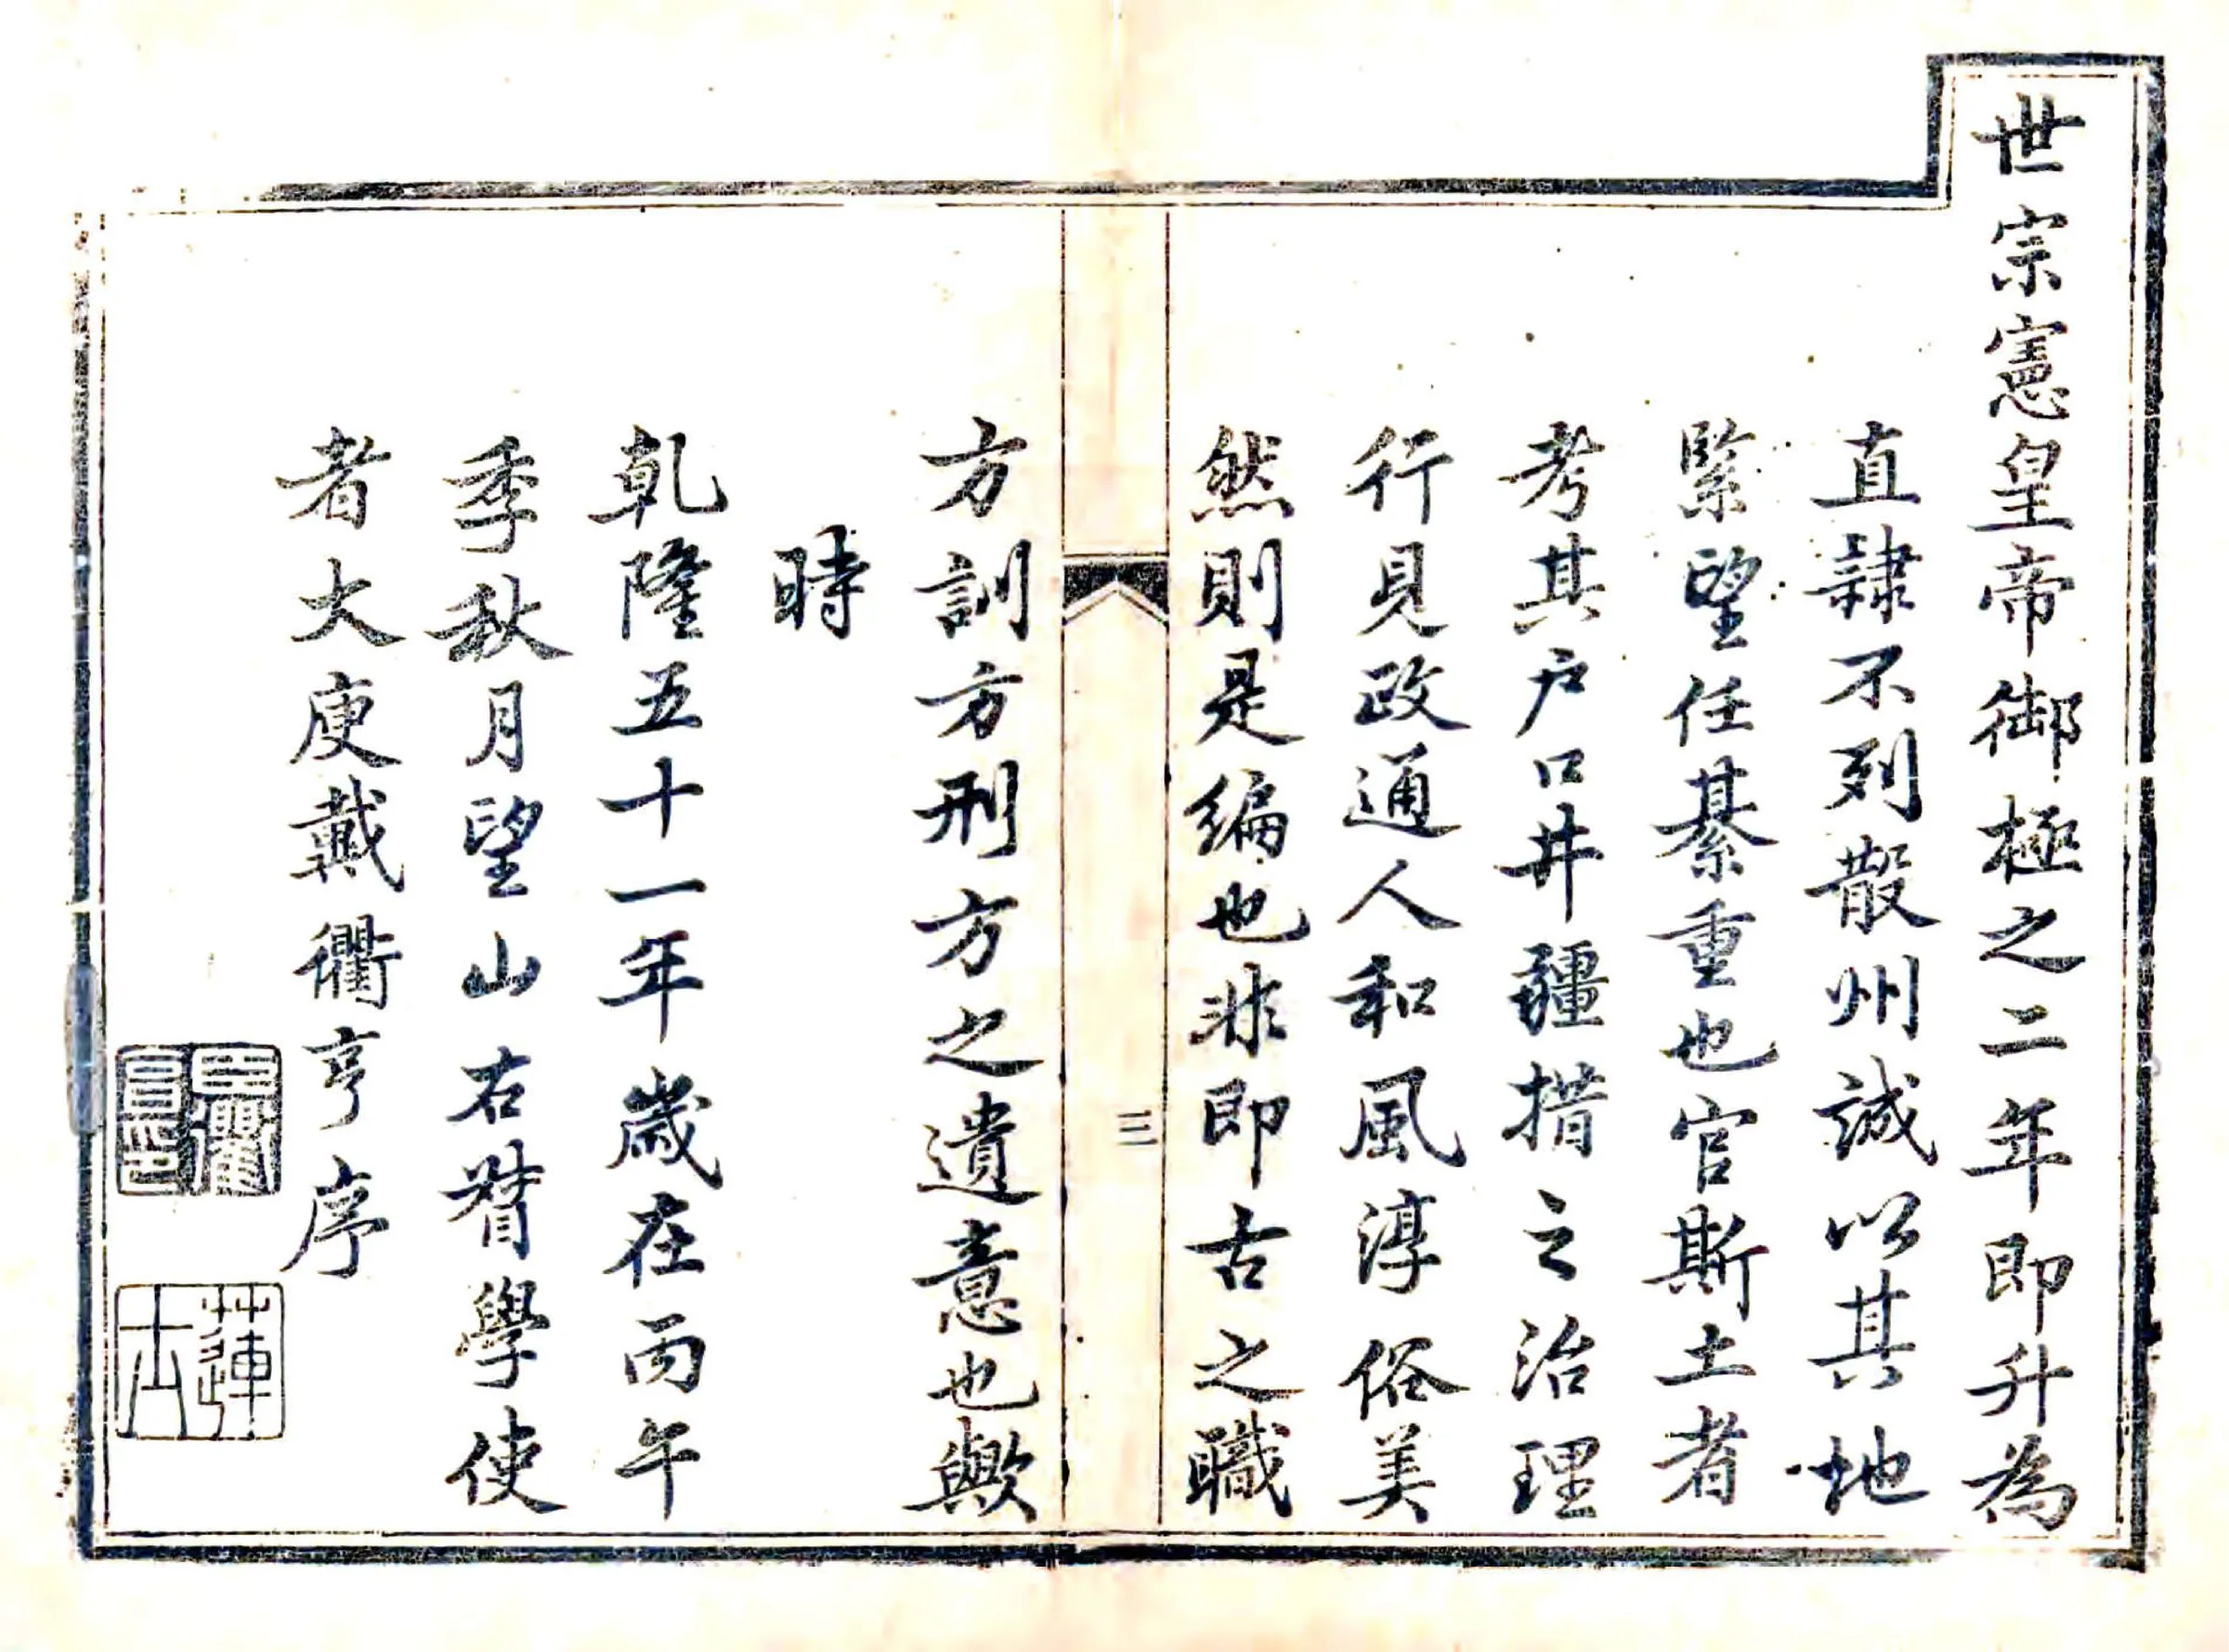 世宗憲皇帝御極之二年即升為
直隸不列散州誠以其地
緊望任綦重也官斯土者
考其户口井疆措之治理
行見政通人和風淳俗美
然則是編也非即古之職
三
方訓方刑方之遺意也歟
時
乹隆五十一年歲在丙午
季秋月望山右督學使
者大庾戴衢亨序
臣衢亨印
蓮士